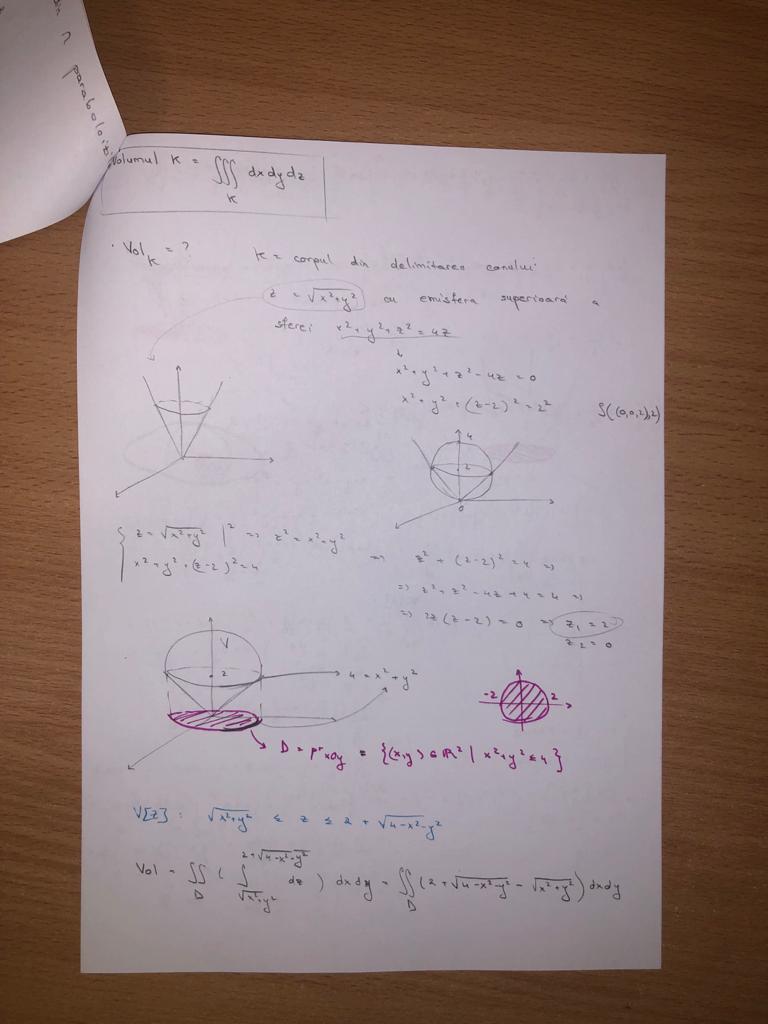 din 2 paraboloizi
Volumul K = ∭_K dxdydz
· Vol_K = ? K = corpul din delimitarea conului
z = √(x²+y²) cu emisfera superioară a
sferei x²+y²+z² = 4z
↓
x²+y²+z²-4z = 0
x²+y²+(z-2)² = 2² S((0,0,2),2)
4
2
0
{ z = √(x²+y²) |² => z² = x²+y²
x²+y²+(z-2)² = 4 => z² + (z-2)² = 4 =>
=> z²+z²-4z+4 = 4 =>
=> 2z(z-2) = 0 => z₁ = 2
z₂ = 0
V
2 → 4 = x²+y²
-2 2
→ D = pr_xOy = {(x,y) ∈ ℝ² | x²+y² ≤ 4}
V[z] : √(x²+y²) ≤ z ≤ 2 + √(4-x²-y²)
Vol = ∬_D ( ∫_{√(x²+y²)}^{2+√(4-x²-y²)} dz ) dxdy = ∬_D (2+√(4-x²-y²) - √(x²+y²)) dxdy